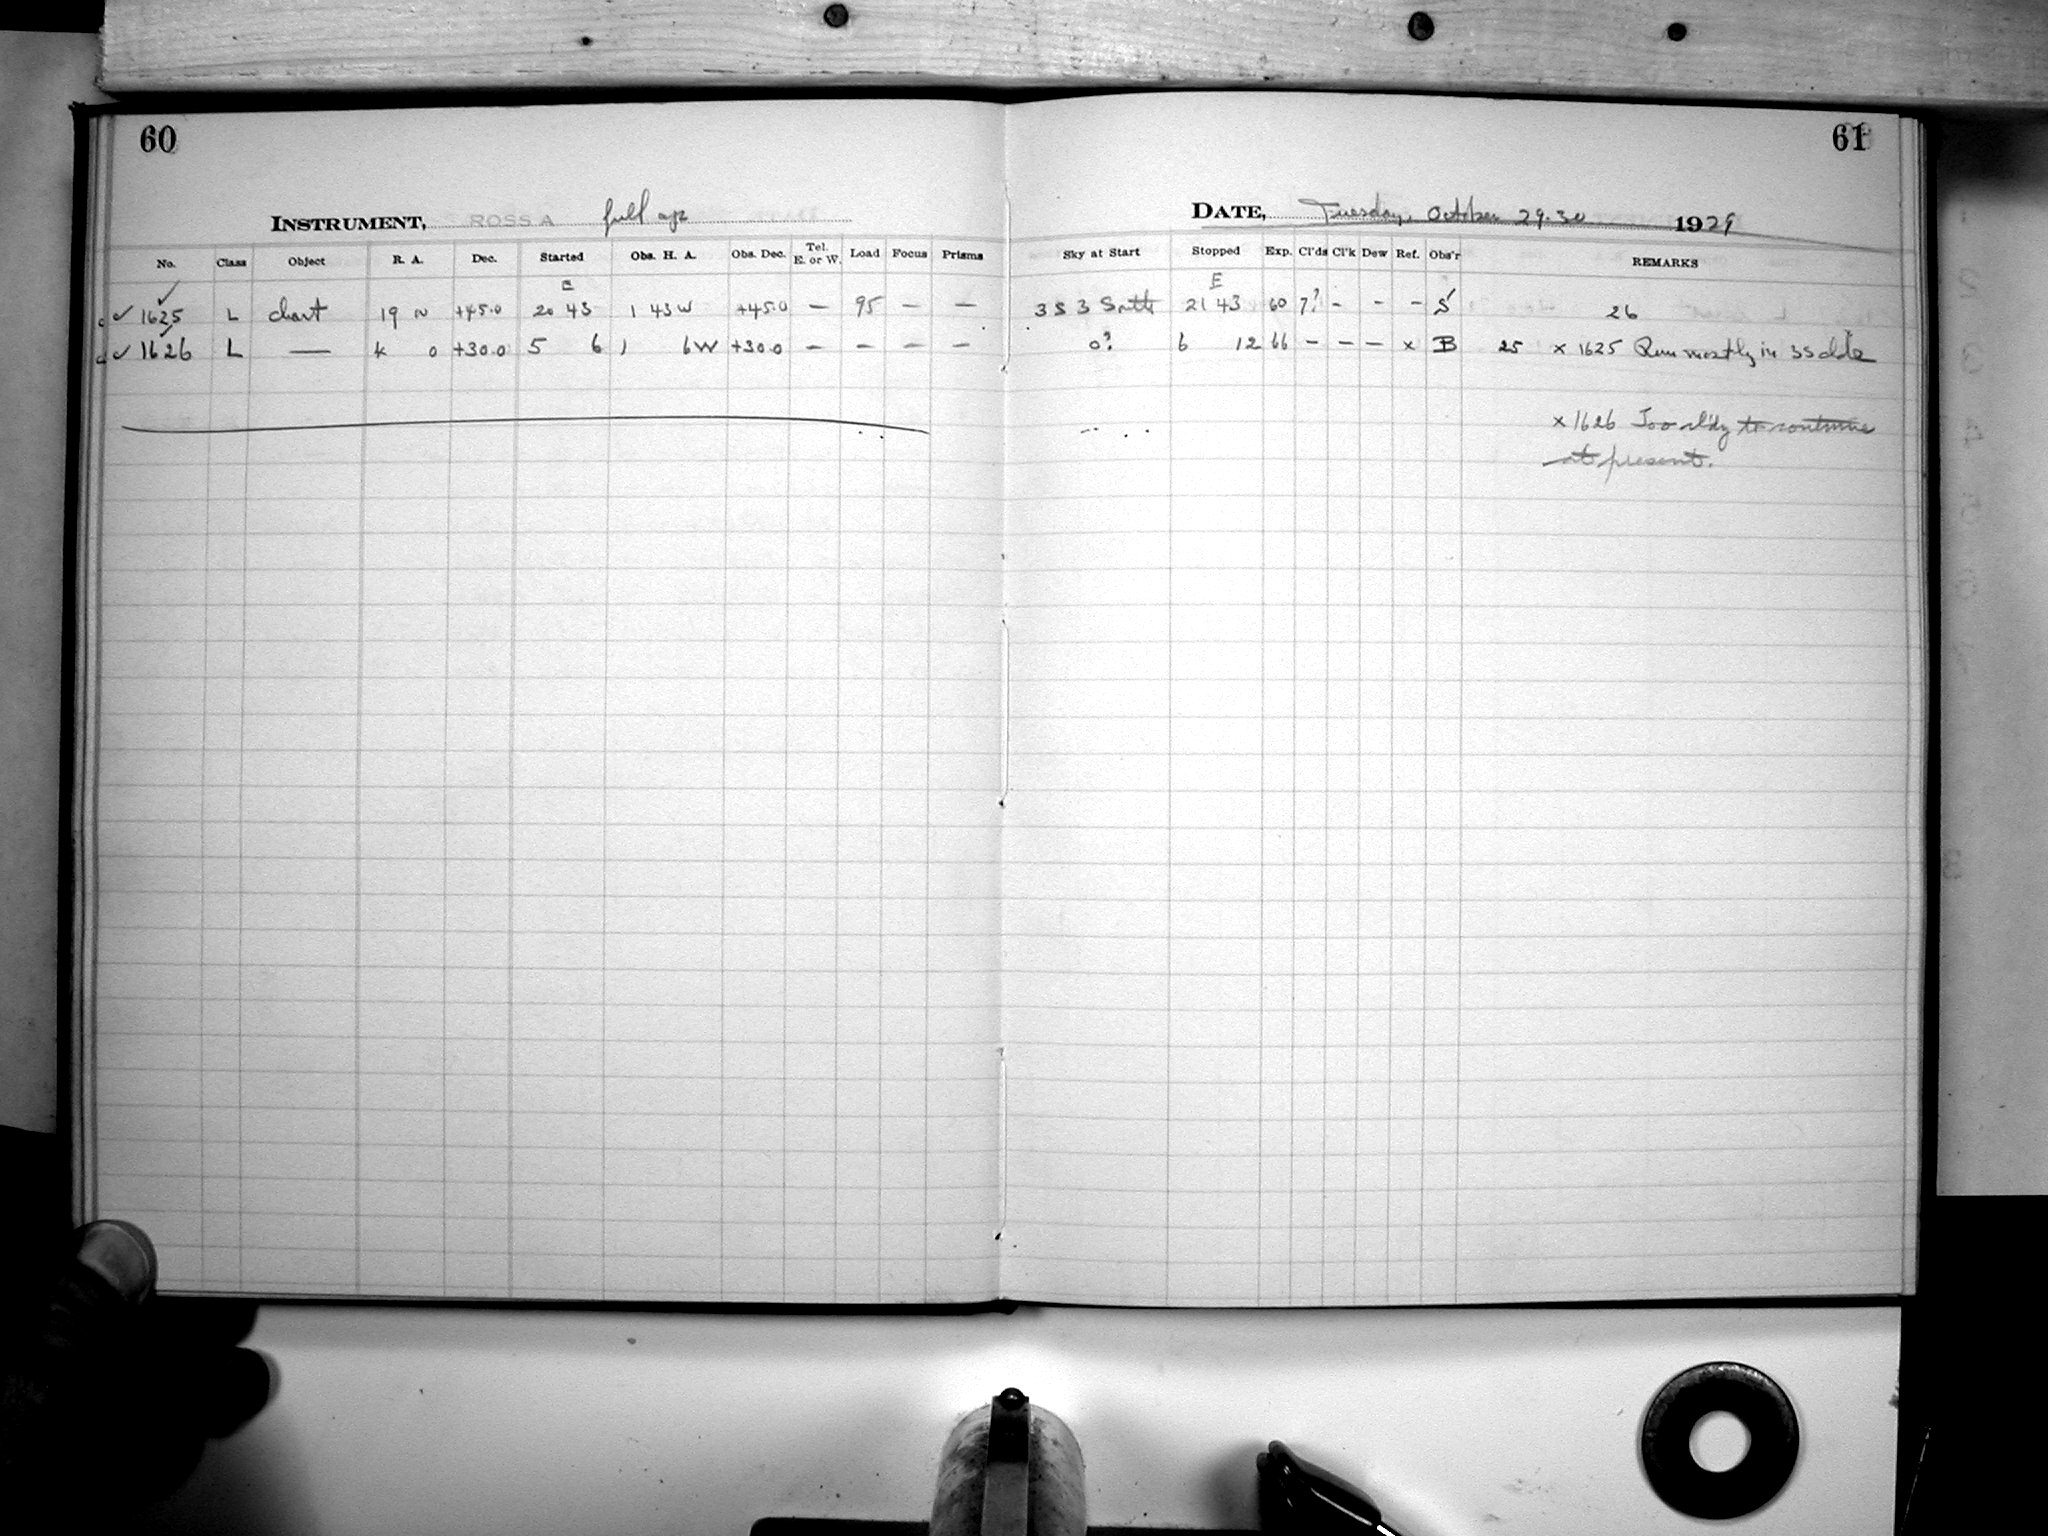 60
61
INSTRUMENT, ROSS A full ap
DATE, Tuesday, October 29.30 1929
No. Class Object R. A. Dec. Started Obs. H. A. Obs. Dec. Tel. E. or W. Load Focus Prisms Sky at Start Stopped Exp. Cl'ds Cl'k Dew Ref. Obs'r REMARKS
E E
✓ 1625 L chart 19 N +45.0 20 43 1 43 W +45.0 — 95 — — 3 S 3 21 43 60 7? - - - S 26
✓ 1626 L — 4 0 +30.0 5 6 1 6 W +30.0 — — — — 0? 6 12 66 — — — x B 25 x 1625 Run mostly in 3S clds
x 1626 Too cl'dy to continue
at present.